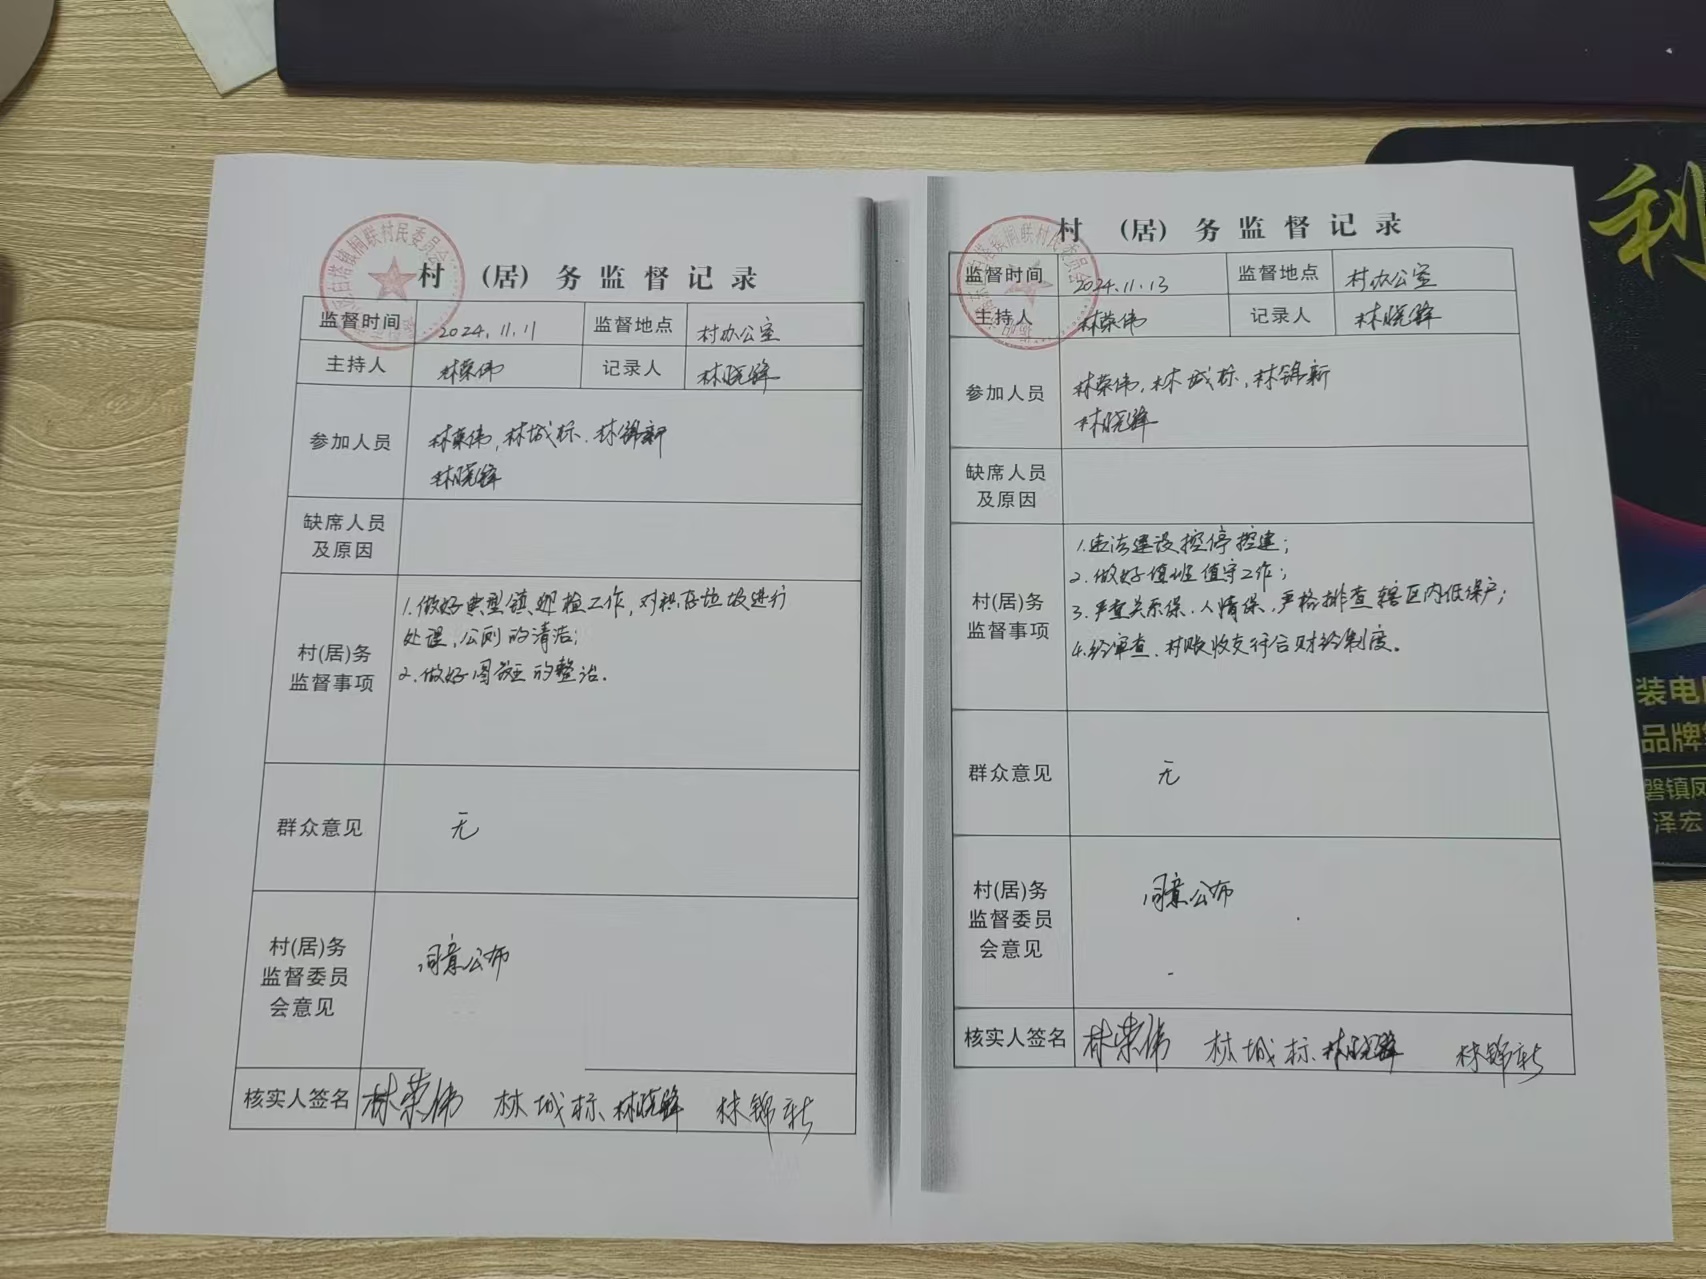 村 (居) 务监督记录
监督时间 2024.11.11 监督地点 村办公室
主持人 林荣伟 记录人 林晓锋
参加人员 林荣伟,林城标.林锦新
林晓锋
缺席人员
及原因
村(居)务
监督事项
1.做好典型镇迎检工作,对积存垃圾进行
处理,公厕的清洁;
2.做好圈的整治.
群众意见 无
村(居)务
监督委员
会意见
同意公布
核实人签名 林荣伟 林城标 林晓锋 林锦新
白塔镇桐联村民委员会
村 (居) 务监督记录
监督时间 2024.11.13 监督地点 村办公室
主持人 林荣伟 记录人 林晓锋
参加人员 林荣伟,林城标,林锦新
林晓锋
缺席人员
及原因
村(居)务
监督事项
1.违法建设控停控建;
2.做好值班值守工作;
3.严查关系保、人情保,严格排查辖区内低保户;
4.经审查,村账收支符合财经制度。
群众意见 无
村(居)务
监督委员
会意见
同意公布
核实人签名 林荣伟 林城标 林晓锋 林锦新
白塔镇桐联村民委员会
利
装电
品牌
磐镇凤
泽宏